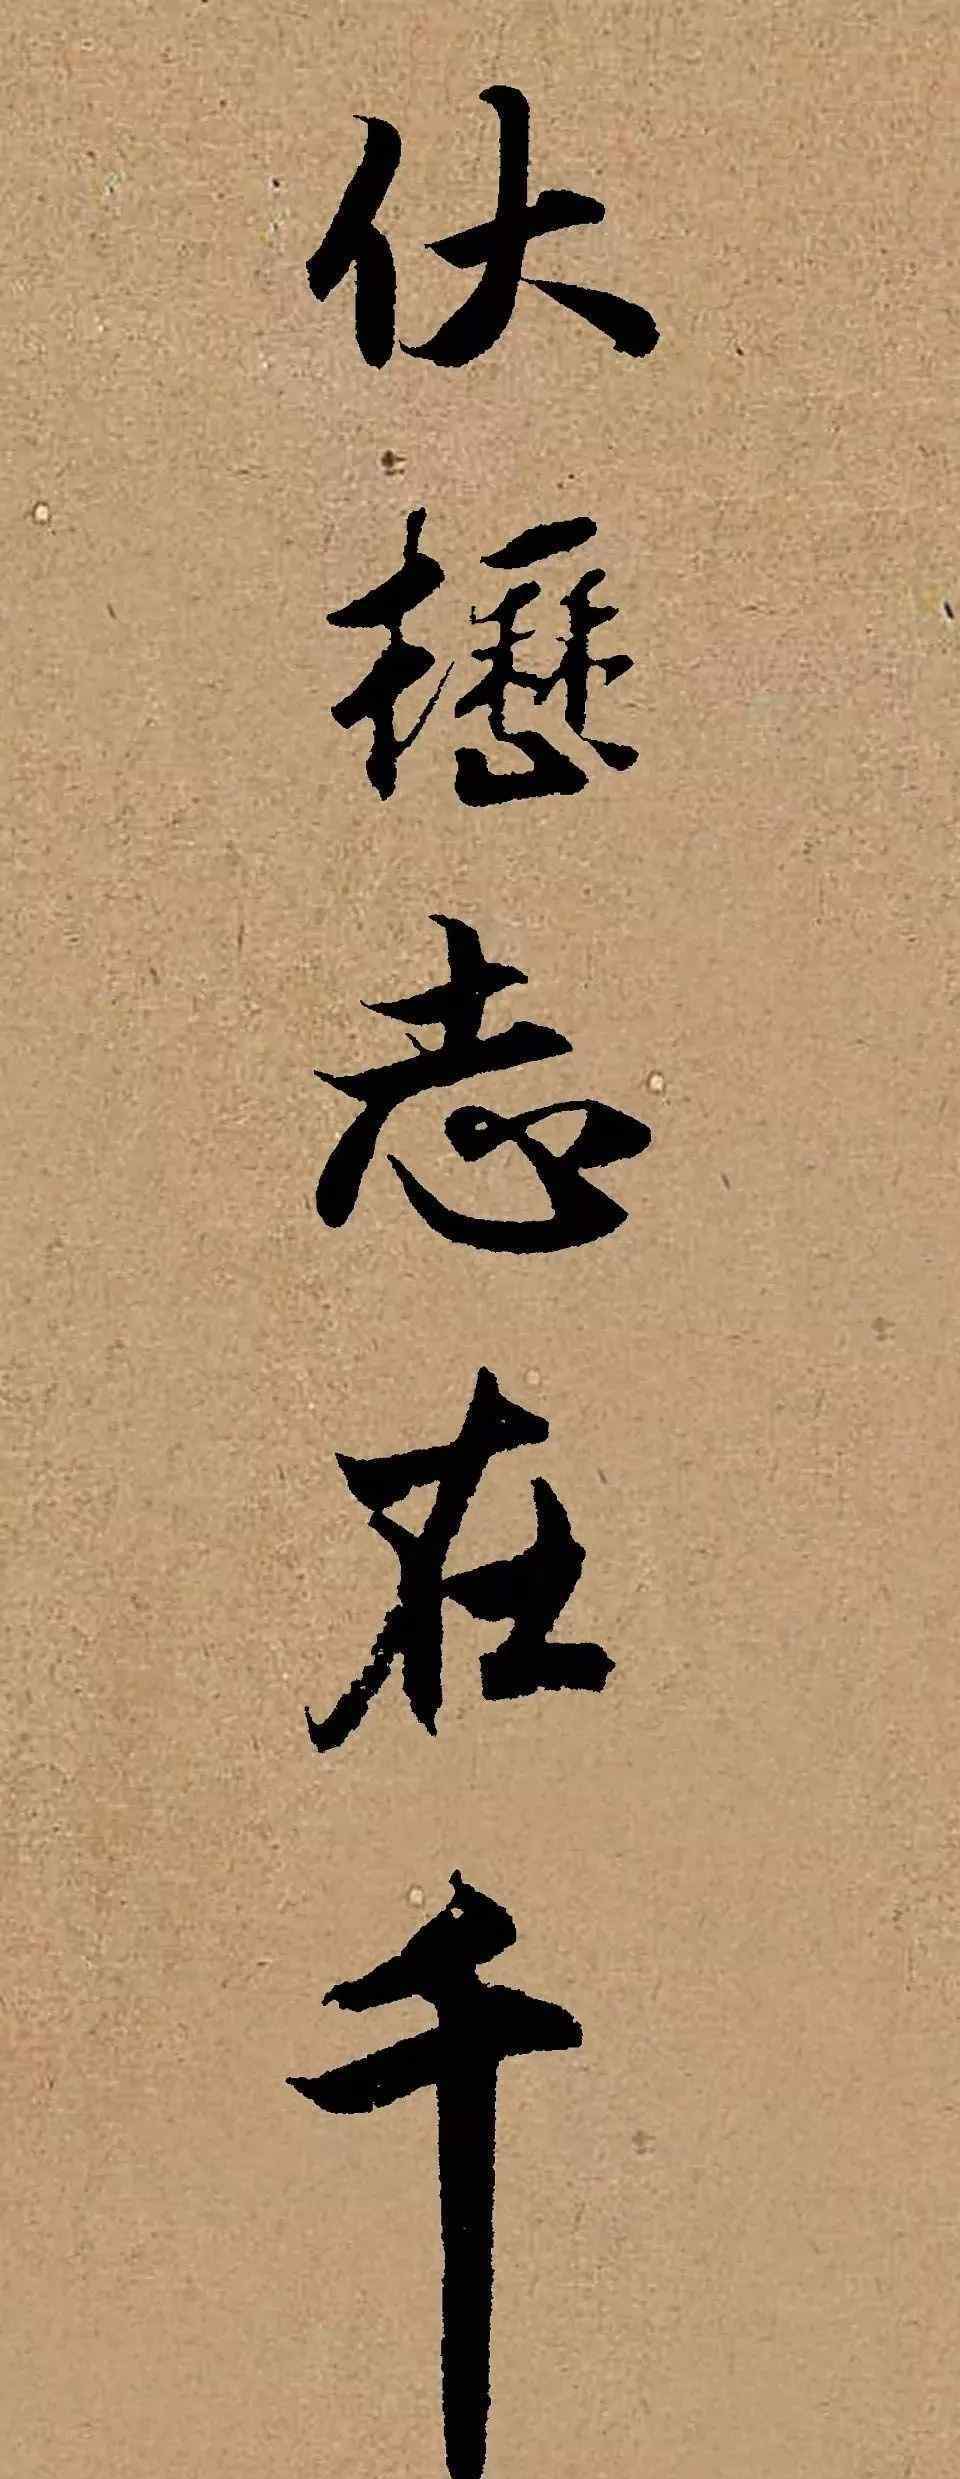 伏櫪志在千